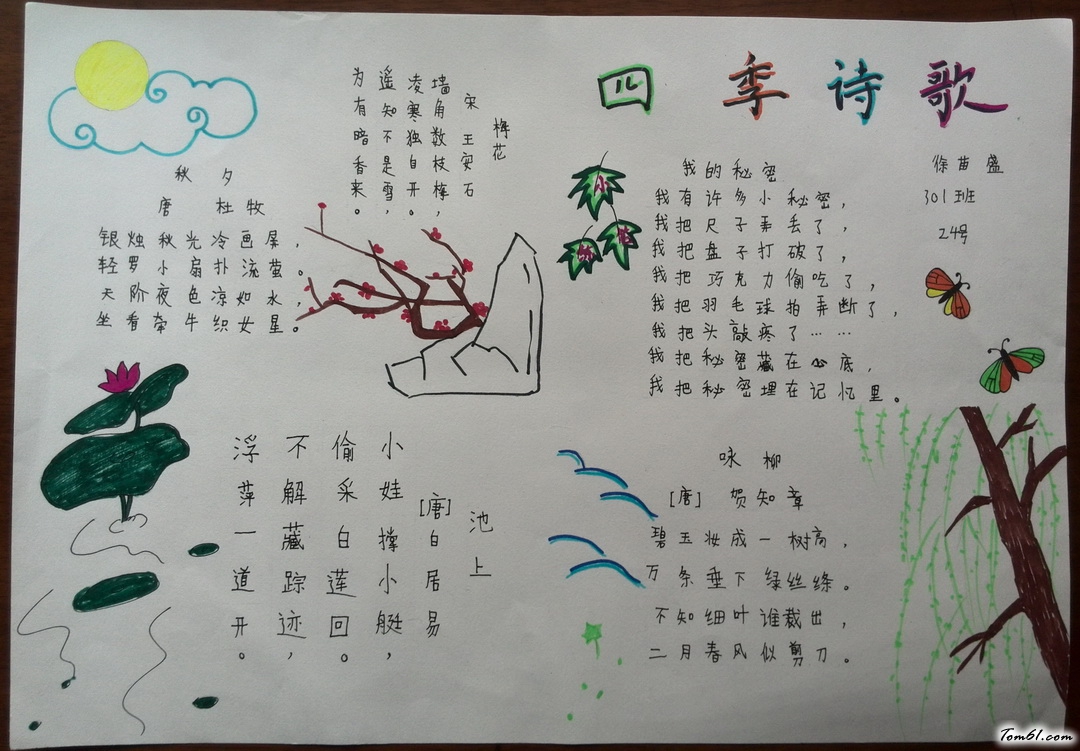 四季诗歌
徐苗盛
301班
24号
秋夕
唐 杜牧
银烛秋光冷画屏，
轻罗小扇扑流萤。
天阶夜色凉如水，
坐看牵牛织女星。
梅花
宋 王安石
墙角数枝梅，
凌寒独自开。
遥知不是雪，
为有暗香来。
我的秘密
我有许多小秘密，
我把尺子弄丢了，
我把盘子打破了，
我把巧克力偷吃了，
我把羽毛球拍弄断了，
我把头敲疼了……
我把秘密藏在心底，
我把秘密埋在记忆里。
池上
[唐]白居易
小娃撑小艇，
偷采白莲回。
不解藏踪迹，
浮萍一道开。
咏柳
[唐] 贺知章
碧玉妆成一树高，
万条垂下绿丝绦。
不知细叶谁裁出，
二月春风似剪刀。
Tom61.com